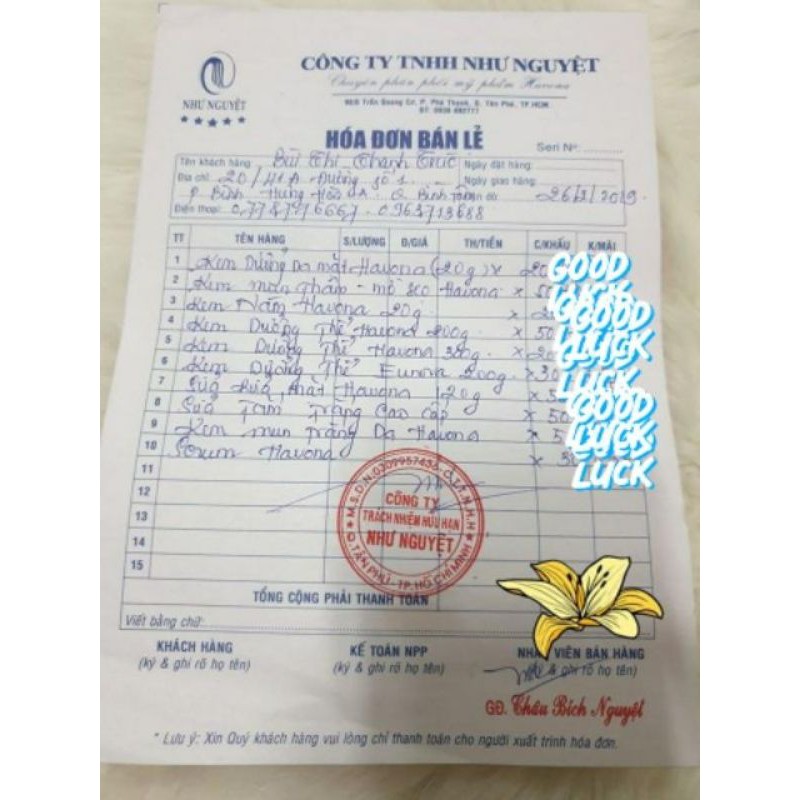 CÔNG TY TNHH NHƯ NGUYỆT
Chuyên phân phối mỹ phẩm Havona
NHƯ NGUYỆT
P. Phú Thạnh, Q. Tân Phú, TP.HCM
HÓA ĐƠN BÁN LẺ
Seri Nº:
Tên khách hàng: Bùi Thị Thanh Trúc
Ngày đặt hàng:
Địa chỉ: 20/41A Đường số 1
Ngày giao hàng:
P Bình Hưng Hòa A. Q Bình Tân
26/2/2019
Điện thoại: 0778796667 - 0963713688
TT TÊN HÀNG S/LƯỢNG Đ/GIÁ TH/TIỀN C/KHẤU K/MÃI
1 Kem Dưỡng Da mặt Havona (20g) x
2 Kem mụn thâm - mờ sẹo Havona x
3 Kem Nám Havona 20g x
4 Kem Dưỡng Thể Havona 200g. x 50
5 Kem Dưỡng Thể Havona 300g. x 20
6 Kem Dưỡng Thể Eunova 200g. x 30
7 Sữa Rửa mặt Havona 120g x
8 Sữa Tắm Trắng Cao Cấp x 50
9 Kem mụn Trắng Da Havona x
10 Serum Havona x
11
12
13
14
15
GOOD
GOOD
LUCK
LUCK
GOOD
LUCK
LUCK
M.S.D.N:0309957436-C.T.T.N.H.H
CÔNG TY
TRÁCH NHIỆM HỮU HẠN
NHƯ NGUYỆT
Q.TÂN PHÚ-TP.HỒ CHÍ MINH
TỔNG CỘNG PHẢI THANH TOÁN
Viết bằng chữ:
KHÁCH HÀNG KẾ TOÁN NPP VIÊN BÁN HÀNG
(ký & ghi rõ họ tên) (ký & ghi rõ họ tên) (ký & ghi rõ họ tên)
GĐ. Châu Bích Nguyệt
* Lưu ý: Xin Quý khách hàng vui lòng chỉ thanh toán cho người xuất trình hóa đơn.